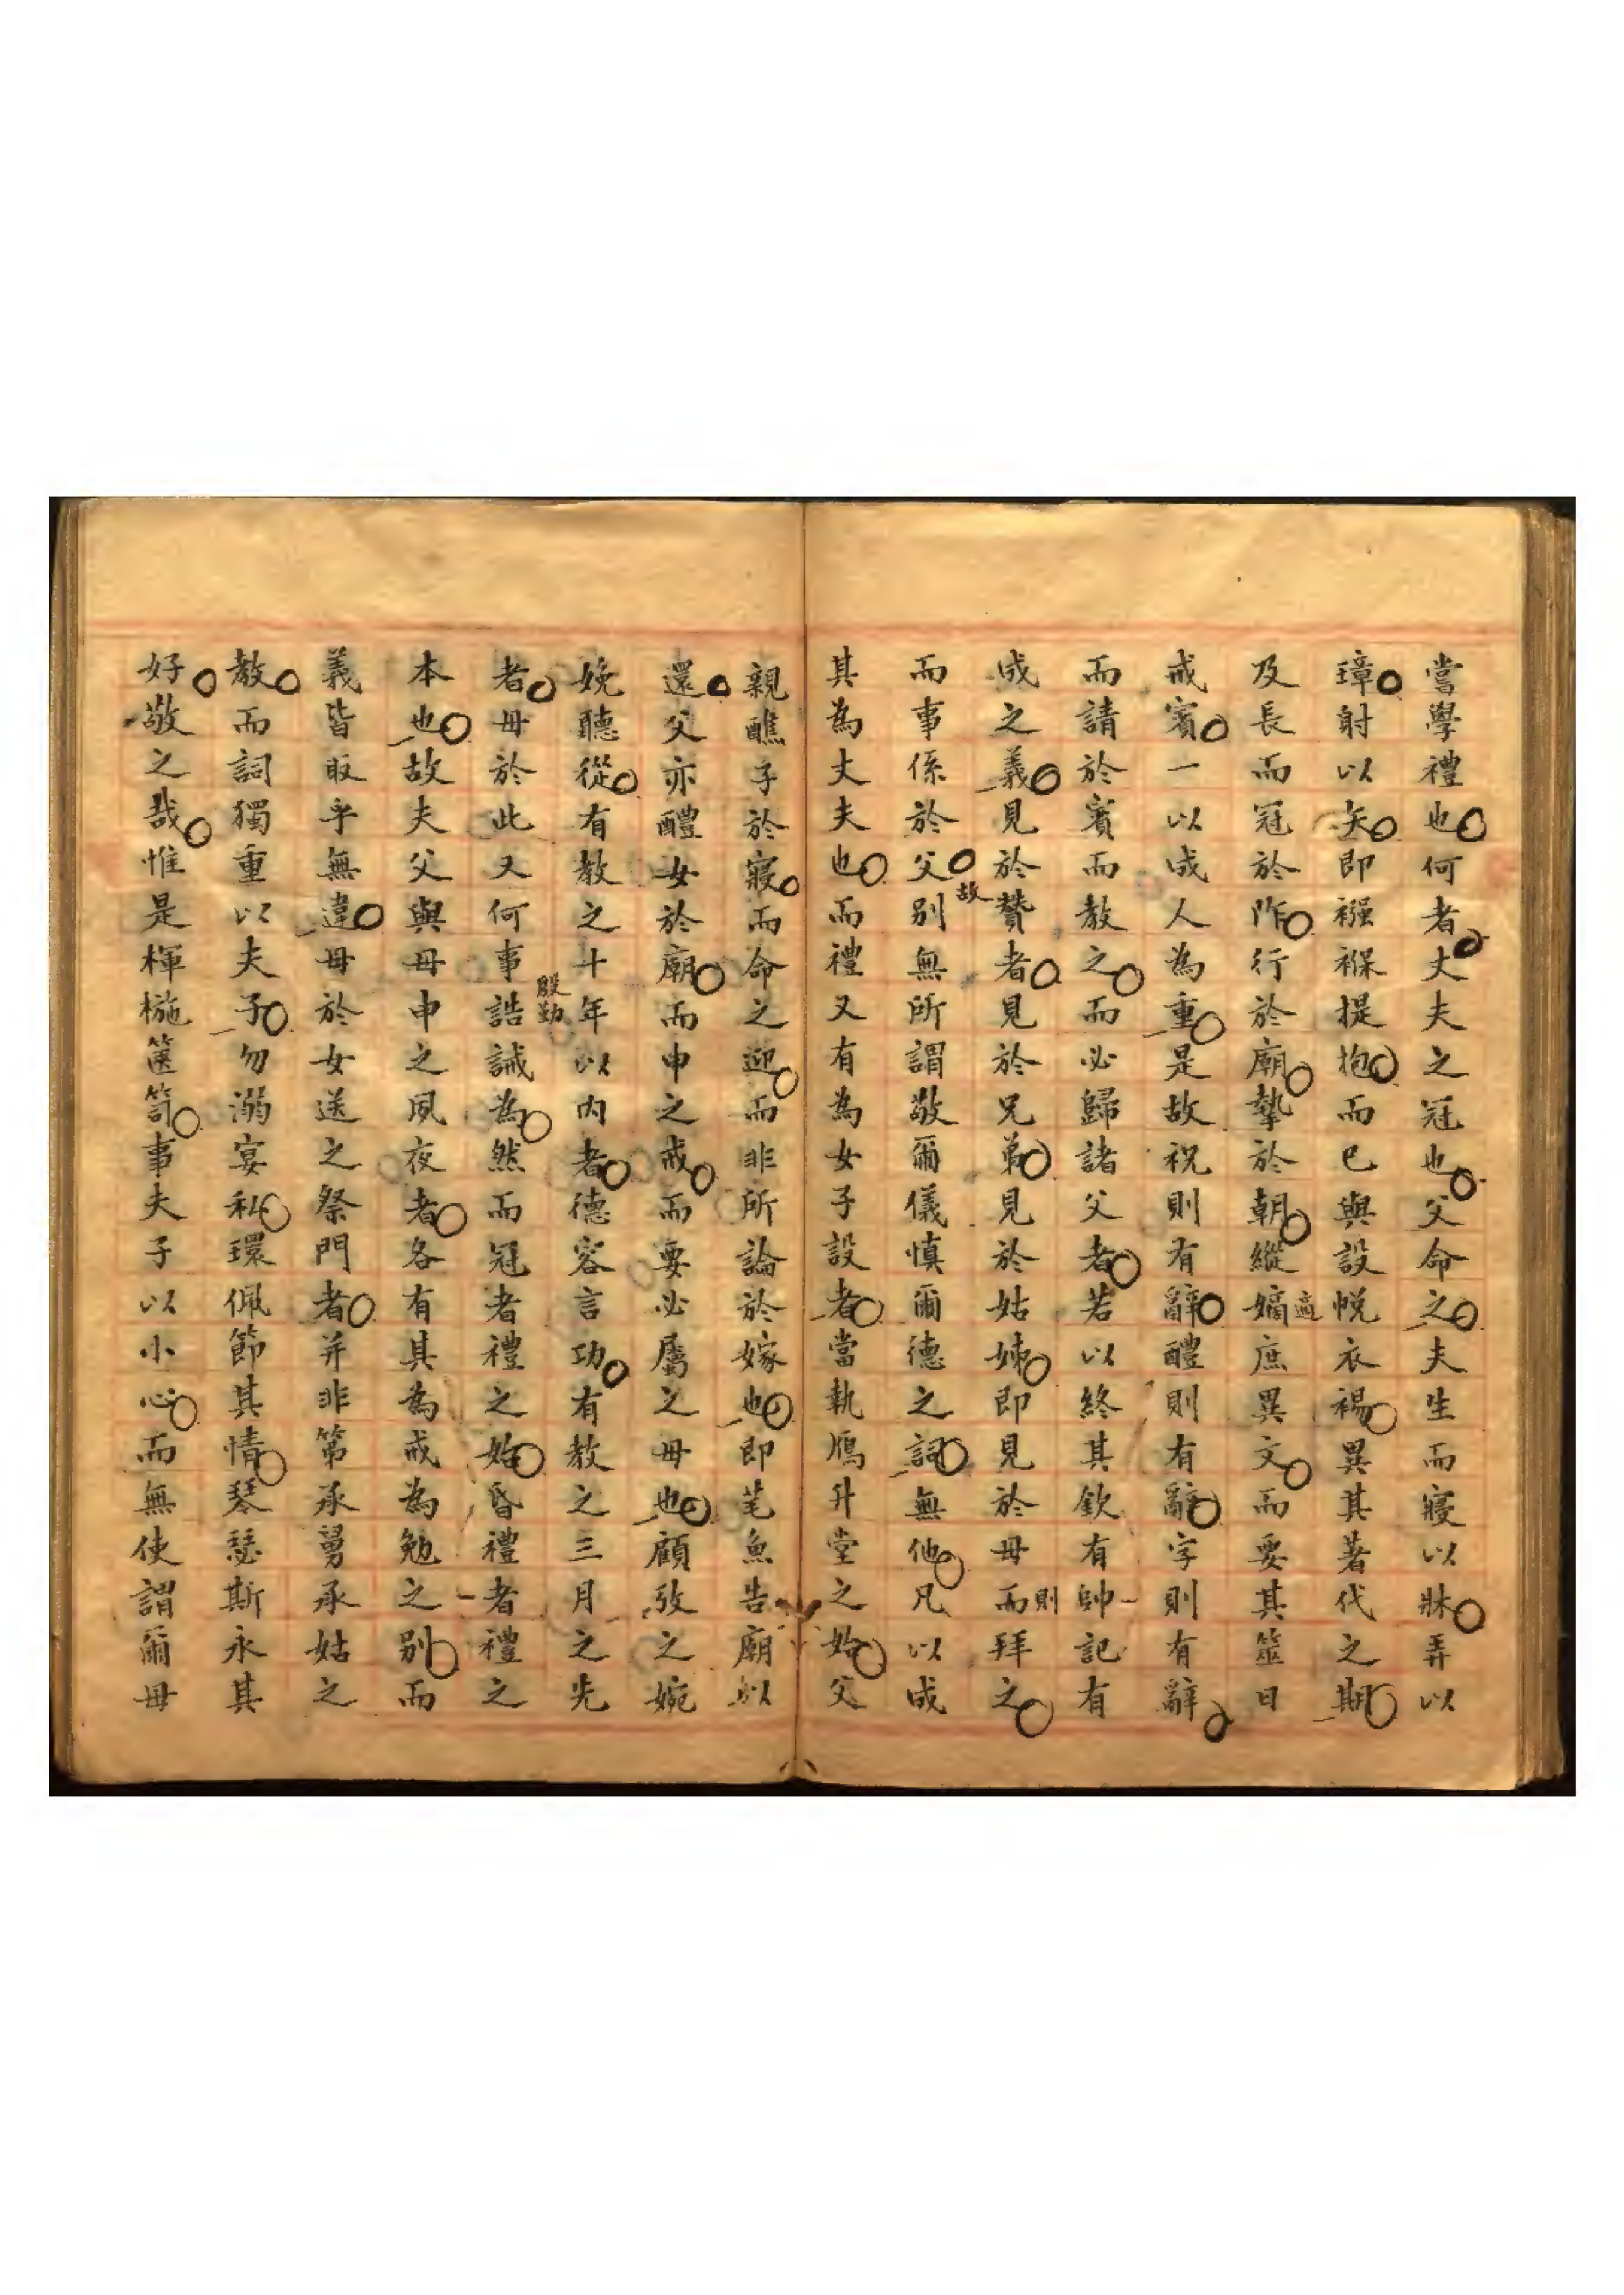 當學禮也何者丈夫之冠也父命之夫生而寢以牀弄以
璋射以矢即襁褓提抱而已與設帨衣裼異其著代之期
及長而冠於阼行於廟摯於朝縱嫡適庶異文而要其筮日
戒賓一以成人為重是故祝則有辭醴則有辭字則有辭
而請於賓而教之而必歸諸父者若以終其欽有帥記有
成之義見於贊者見於兄弟見於姑姊即見於母而則拜之
而事係於父故別無所謂敬爾儀慎爾德之詞無他凡以成
其為丈夫也而禮又有為女子設者當執鴈升堂之始父
親醮子於寢而命之迎而非所論於嫁也即芼魚告廟以
還父亦醴女於廟而申之戒而要必屬之母也顧攷之婉
娩聽從有教之十年以內者德容言功有教之三月之先
者母於此又何事殷勤誥誡為然而冠者禮之始昏禮者禮之
本也故夫父與母申之夙夜者各有其為戒為勉之別而
義皆取乎無違母於女送之祭門者并非第承舅承姑之
教而詞獨重以夫子勿溺宴私環佩節其情琴瑟斯永其
好敬之哉惟是楎椸篋笥事夫子以小心而無使謂爾母